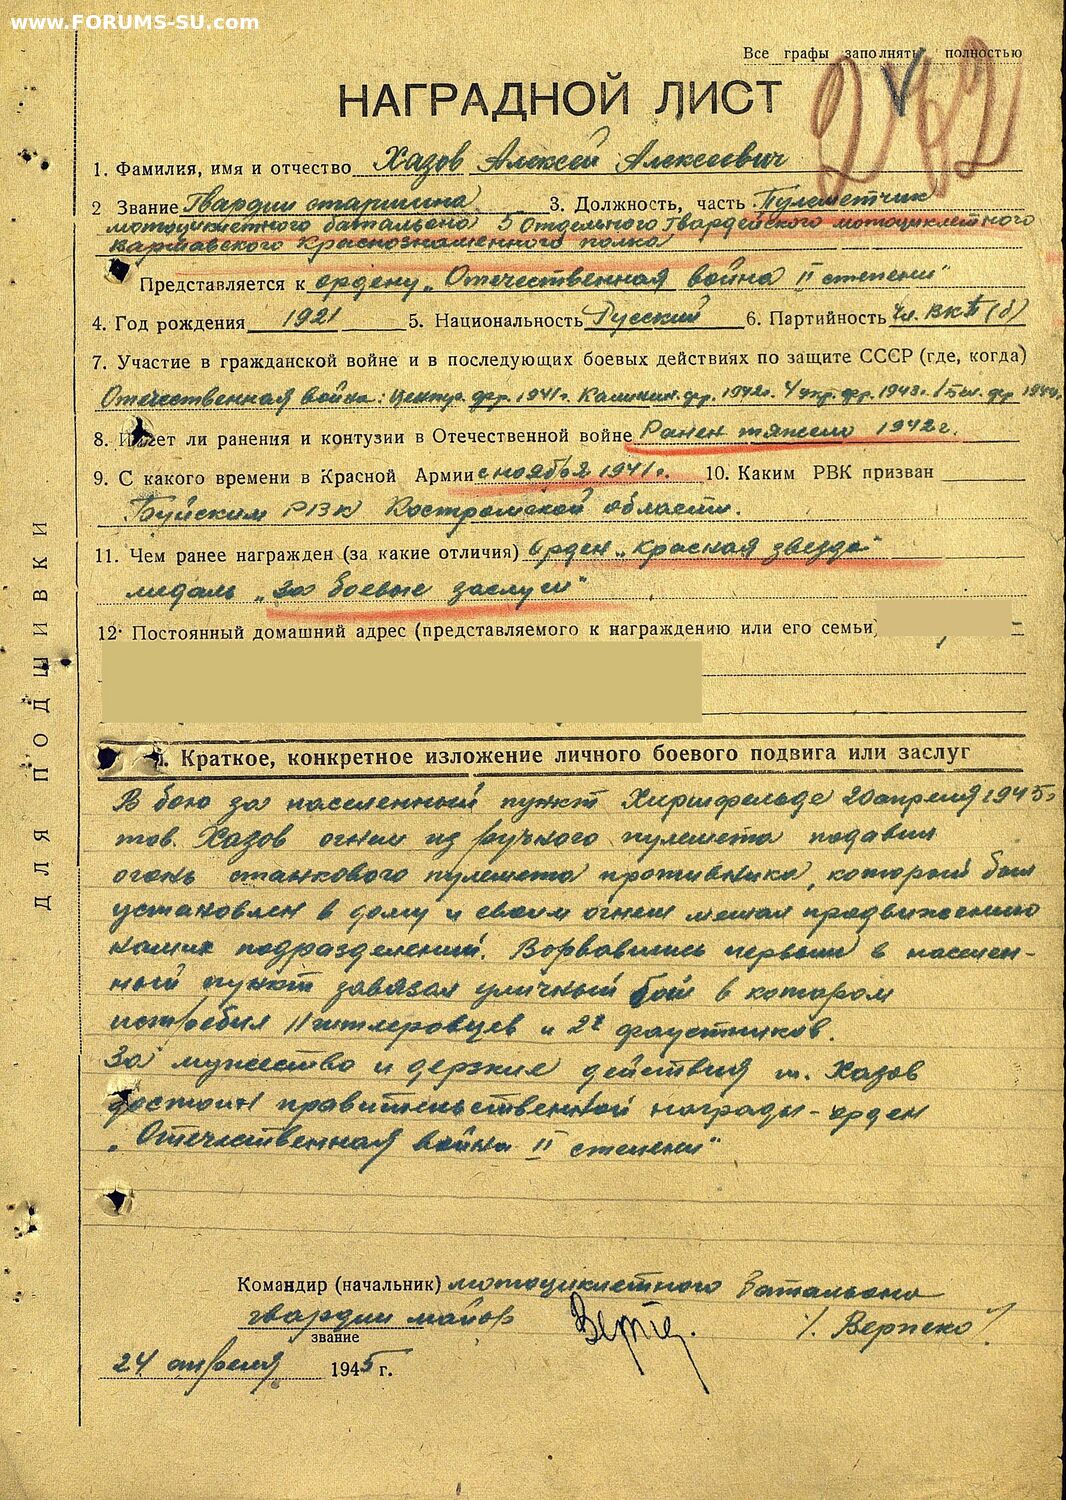 www.FORUMS-SU.com
Все графы заполнять полностью
НАГРАДНОЙ ЛИСТ
1. Фамилия, имя и отчество Хазов Алексей Алексеевич
2 Звание Гвардии старшина 3. Должность, часть Пулеметчик
мотоциклетного батальона 5 Отдельного Гвардейского мотоциклетного
Варшавского Краснознаменного полка
Представляется к ордену „Отечественная война II степени"
4. Год рождения 1921 5. Национальность Русский 6. Партийность Чл. ВКП(б)
7. Участие в гражданской войне и в последующих боевых действиях по защите СССР (где, когда)
Отечественная война: Центр. фр. 1941г. Калинин. фр. 1942г. 4 Укр. фр. 1943г. 1 Бел. фр 1944г.
8. Имеет ли ранения и контузии в Отечественной войне Ранен тяжело 1942г.
9. С какого времени в Красной Армии с ноября 1941г. 10. Каким РВК призван
Буйским РВК Костромской области.
11. Чем ранее награжден (за какие отличия) Орден „Красная звезда"
медаль „За боевые заслуги"
12. Постоянный домашний адрес (представляемого к награждению или его семьи)
ДЛЯ ПОДШИВКИ
I. Краткое, конкретное изложение личного боевого подвига или заслуг
В бою за населенный пункт Хиршфельде 20 апреля 1945г
тов. Хазов огнем из ручного пулемета подавил
огонь станкового пулемета противника, который был
установлен в дому и своим огнем мешал продвижению
наших подразделений. Ворвавшись первым в населен-
ный пункт завязал уличный бой в котором
истребил 11 гитлеровцев и 2х фаустников.
За мужество и дерзкие действия т. Хазов
достоин правительственной награды - орден
„Отечественная война II степени"
Командир (начальник) мотоциклетного батальона
гвардии майор /Верпеко/
звание
24 апреля 1945 г.